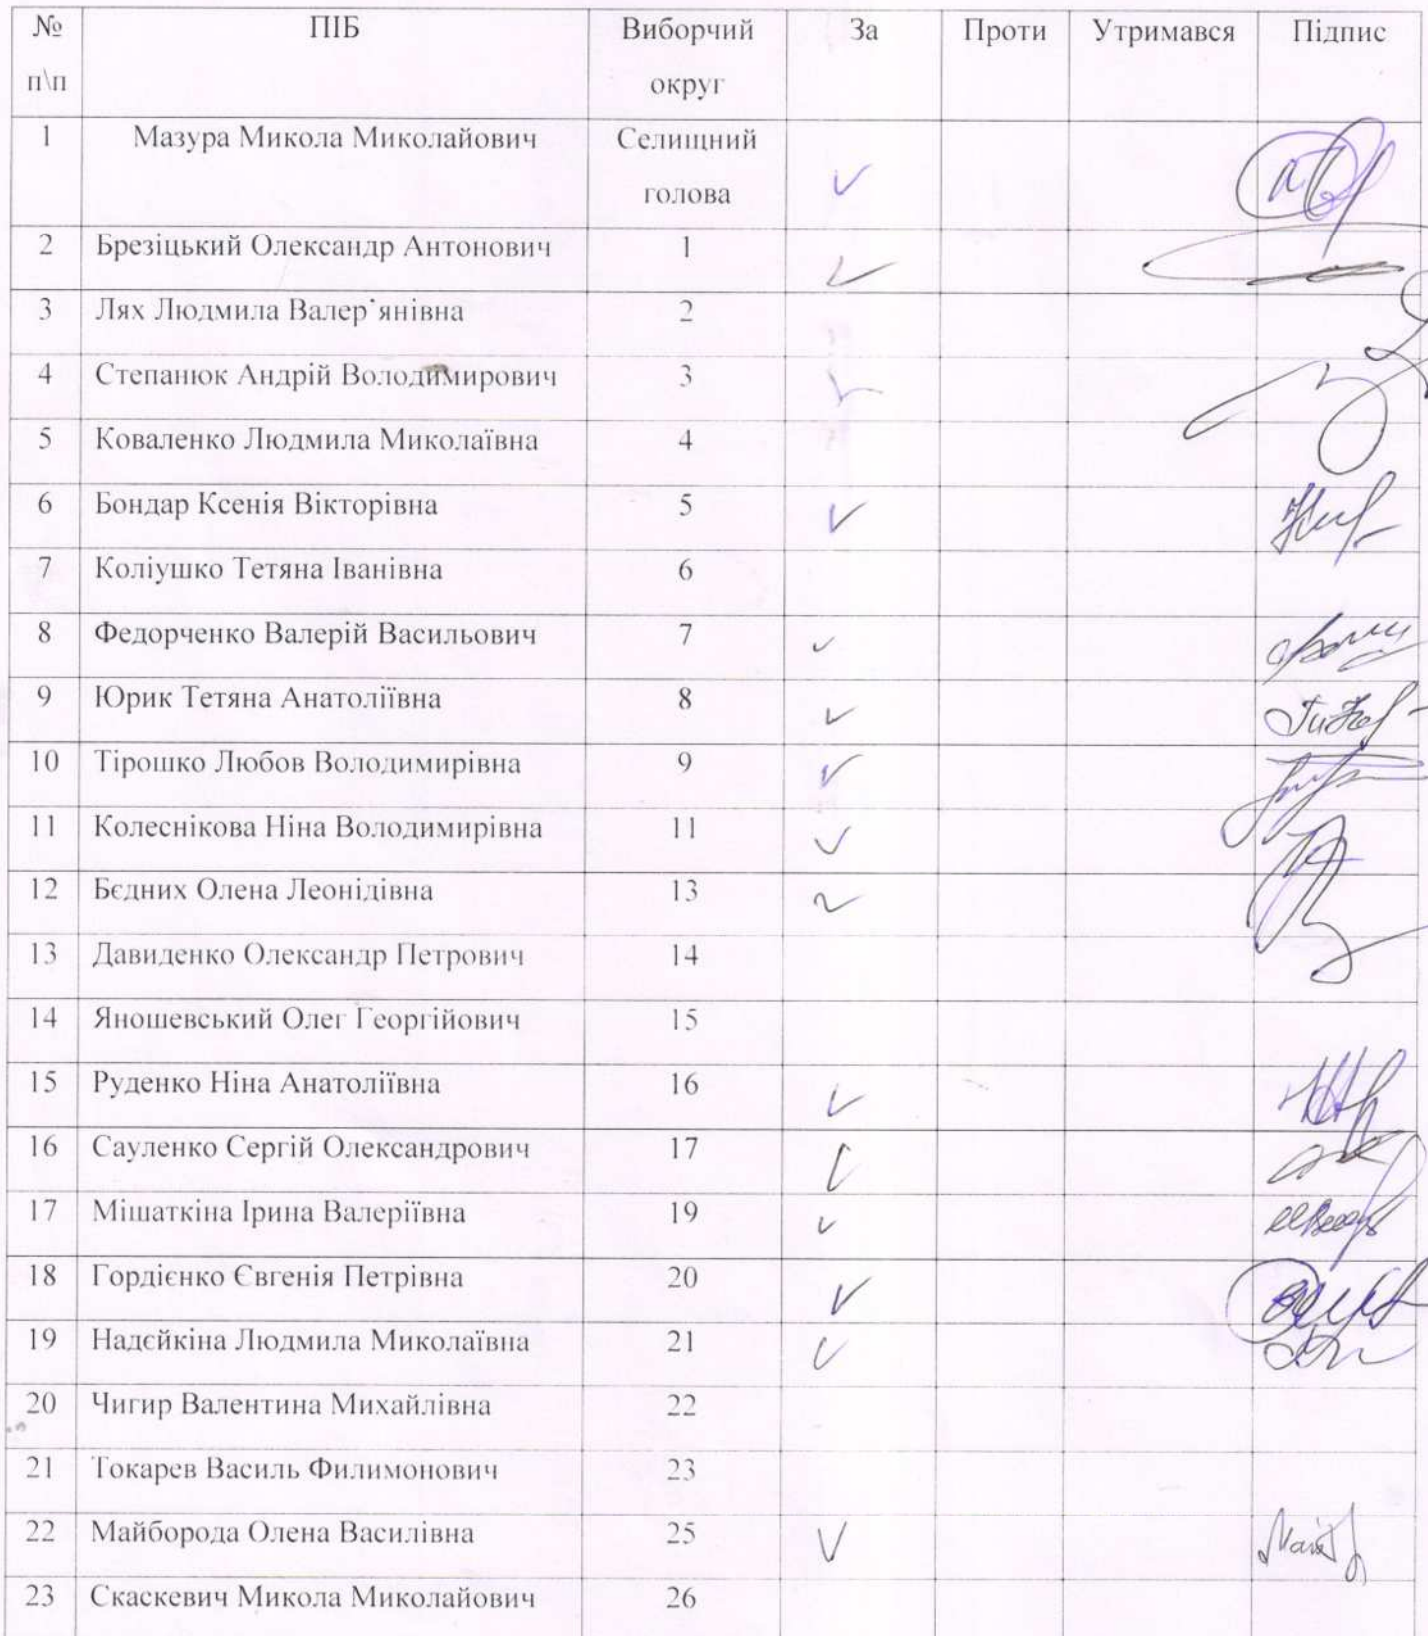 № п\п ПІБ Виборчий округ За Проти Утримався Підпис
1 Мазура Микола Миколайович Селищний голова
2 Брезіцький Олександр Антонович 1
3 Лях Людмила Валер`янівна 2
4 Степанюк Андрій Володимирович 3
5 Коваленко Людмила Миколаївна 4
6 Бондар Ксенія Вікторівна 5
7 Коліушко Тетяна Іванівна 6
8 Федорченко Валерій Васильович 7
9 Юрик Тетяна Анатоліївна 8
10 Тірошко Любов Володимирівна 9
11 Колеснікова Ніна Володимирівна 11
12 Бєдних Олена Леонідівна 13
13 Давиденко Олександр Петрович 14
14 Яношевський Олег Георгійович 15
15 Руденко Ніна Анатоліївна 16
16 Сауленко Сергій Олександрович 17
17 Мішаткіна Ірина Валеріївна 19
18 Гордієнко Євгенія Петрівна 20
19 Надєйкіна Людмила Миколаївна 21
20 Чигир Валентина Михайлівна 22
21 Токарев Василь Филимонович 23
22 Майборода Олена Василівна 25
23 Скаскевич Микола Миколайович 26